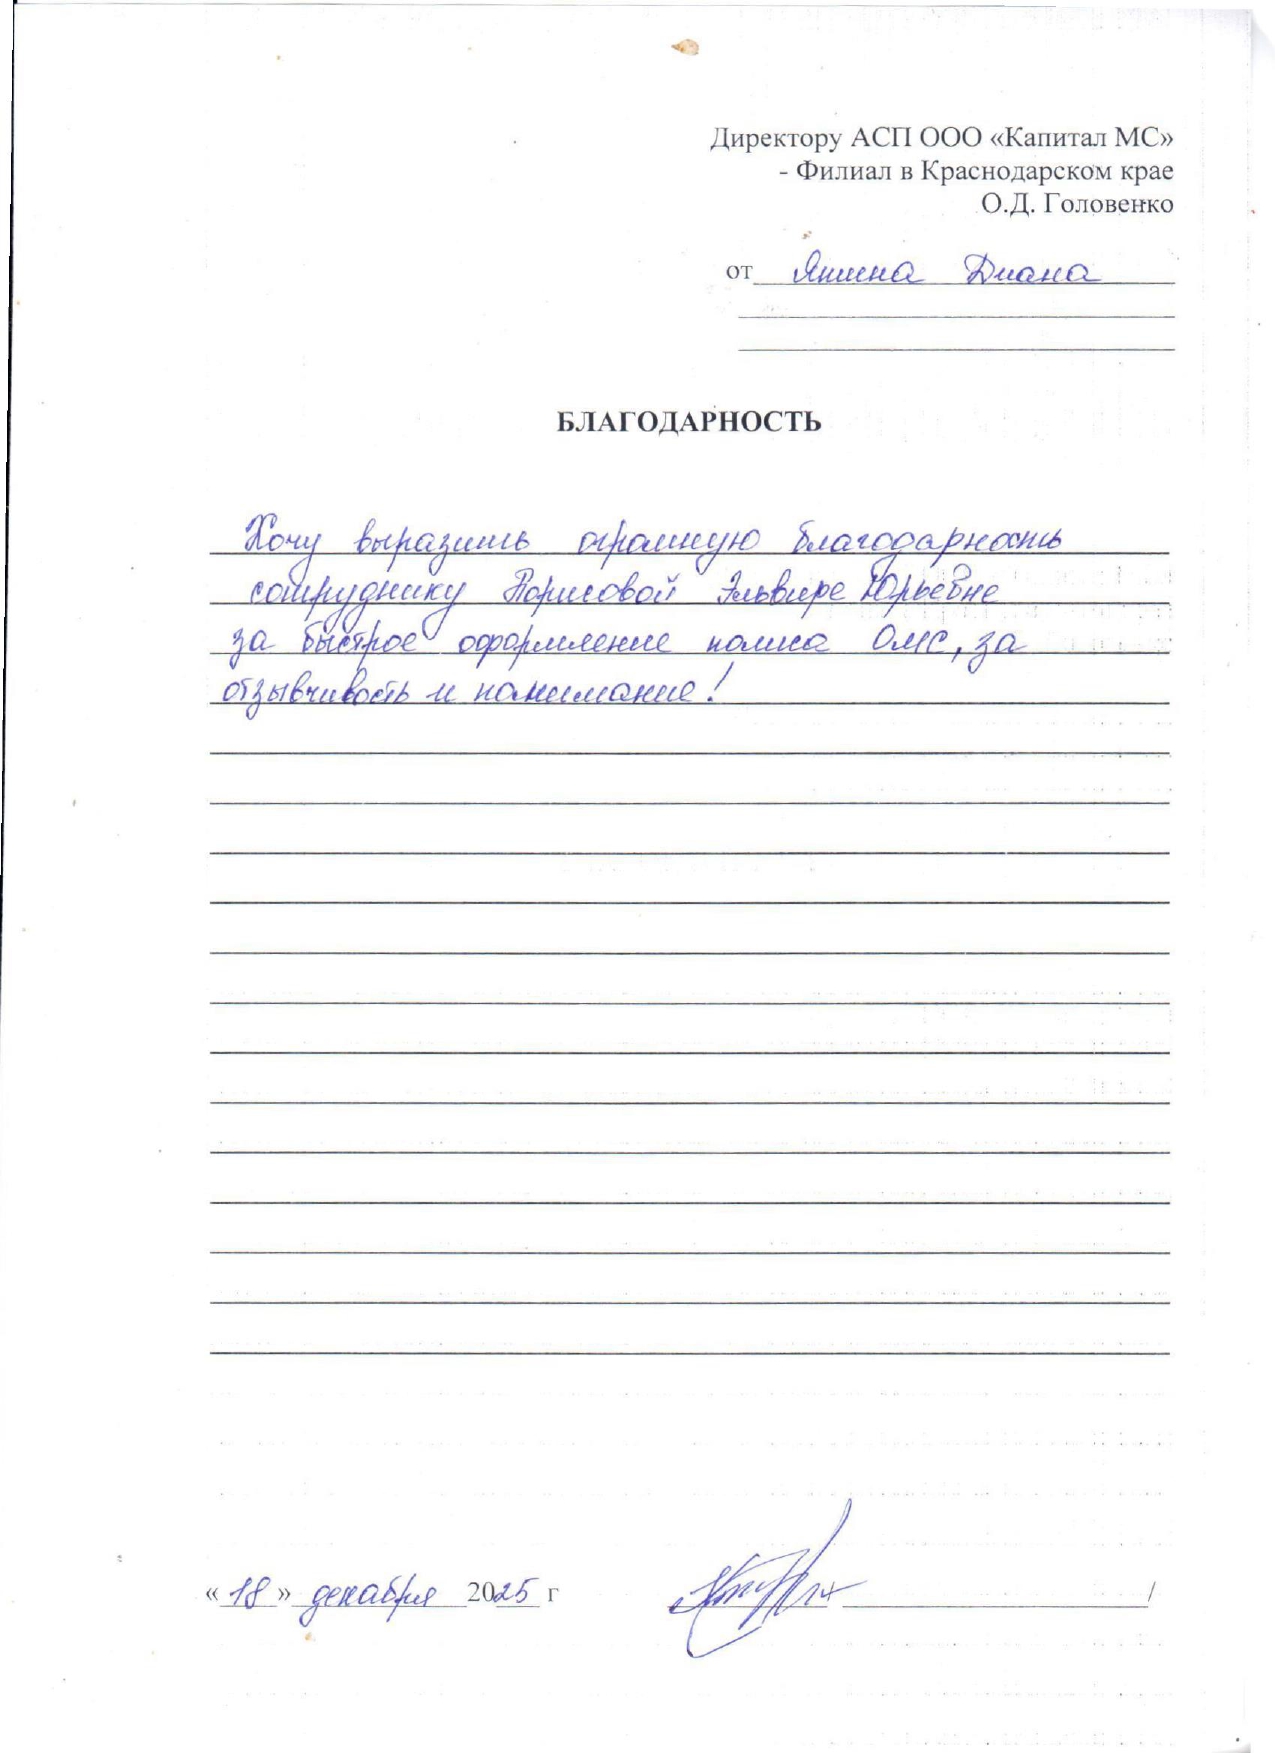 Директору АСП ООО «Капитал МС»
- Филиал в Краснодарском крае
О.Д. Головенко
от Яшина Диана
БЛАГОДАРНОСТЬ
Хочу выразить огромную благодарность
сотруднику Борисовой Эльвире Юрьевне
за быстрое оформление полиса ОМС, за
отзывчивость и понимание!
«18» декабря 2025 г /